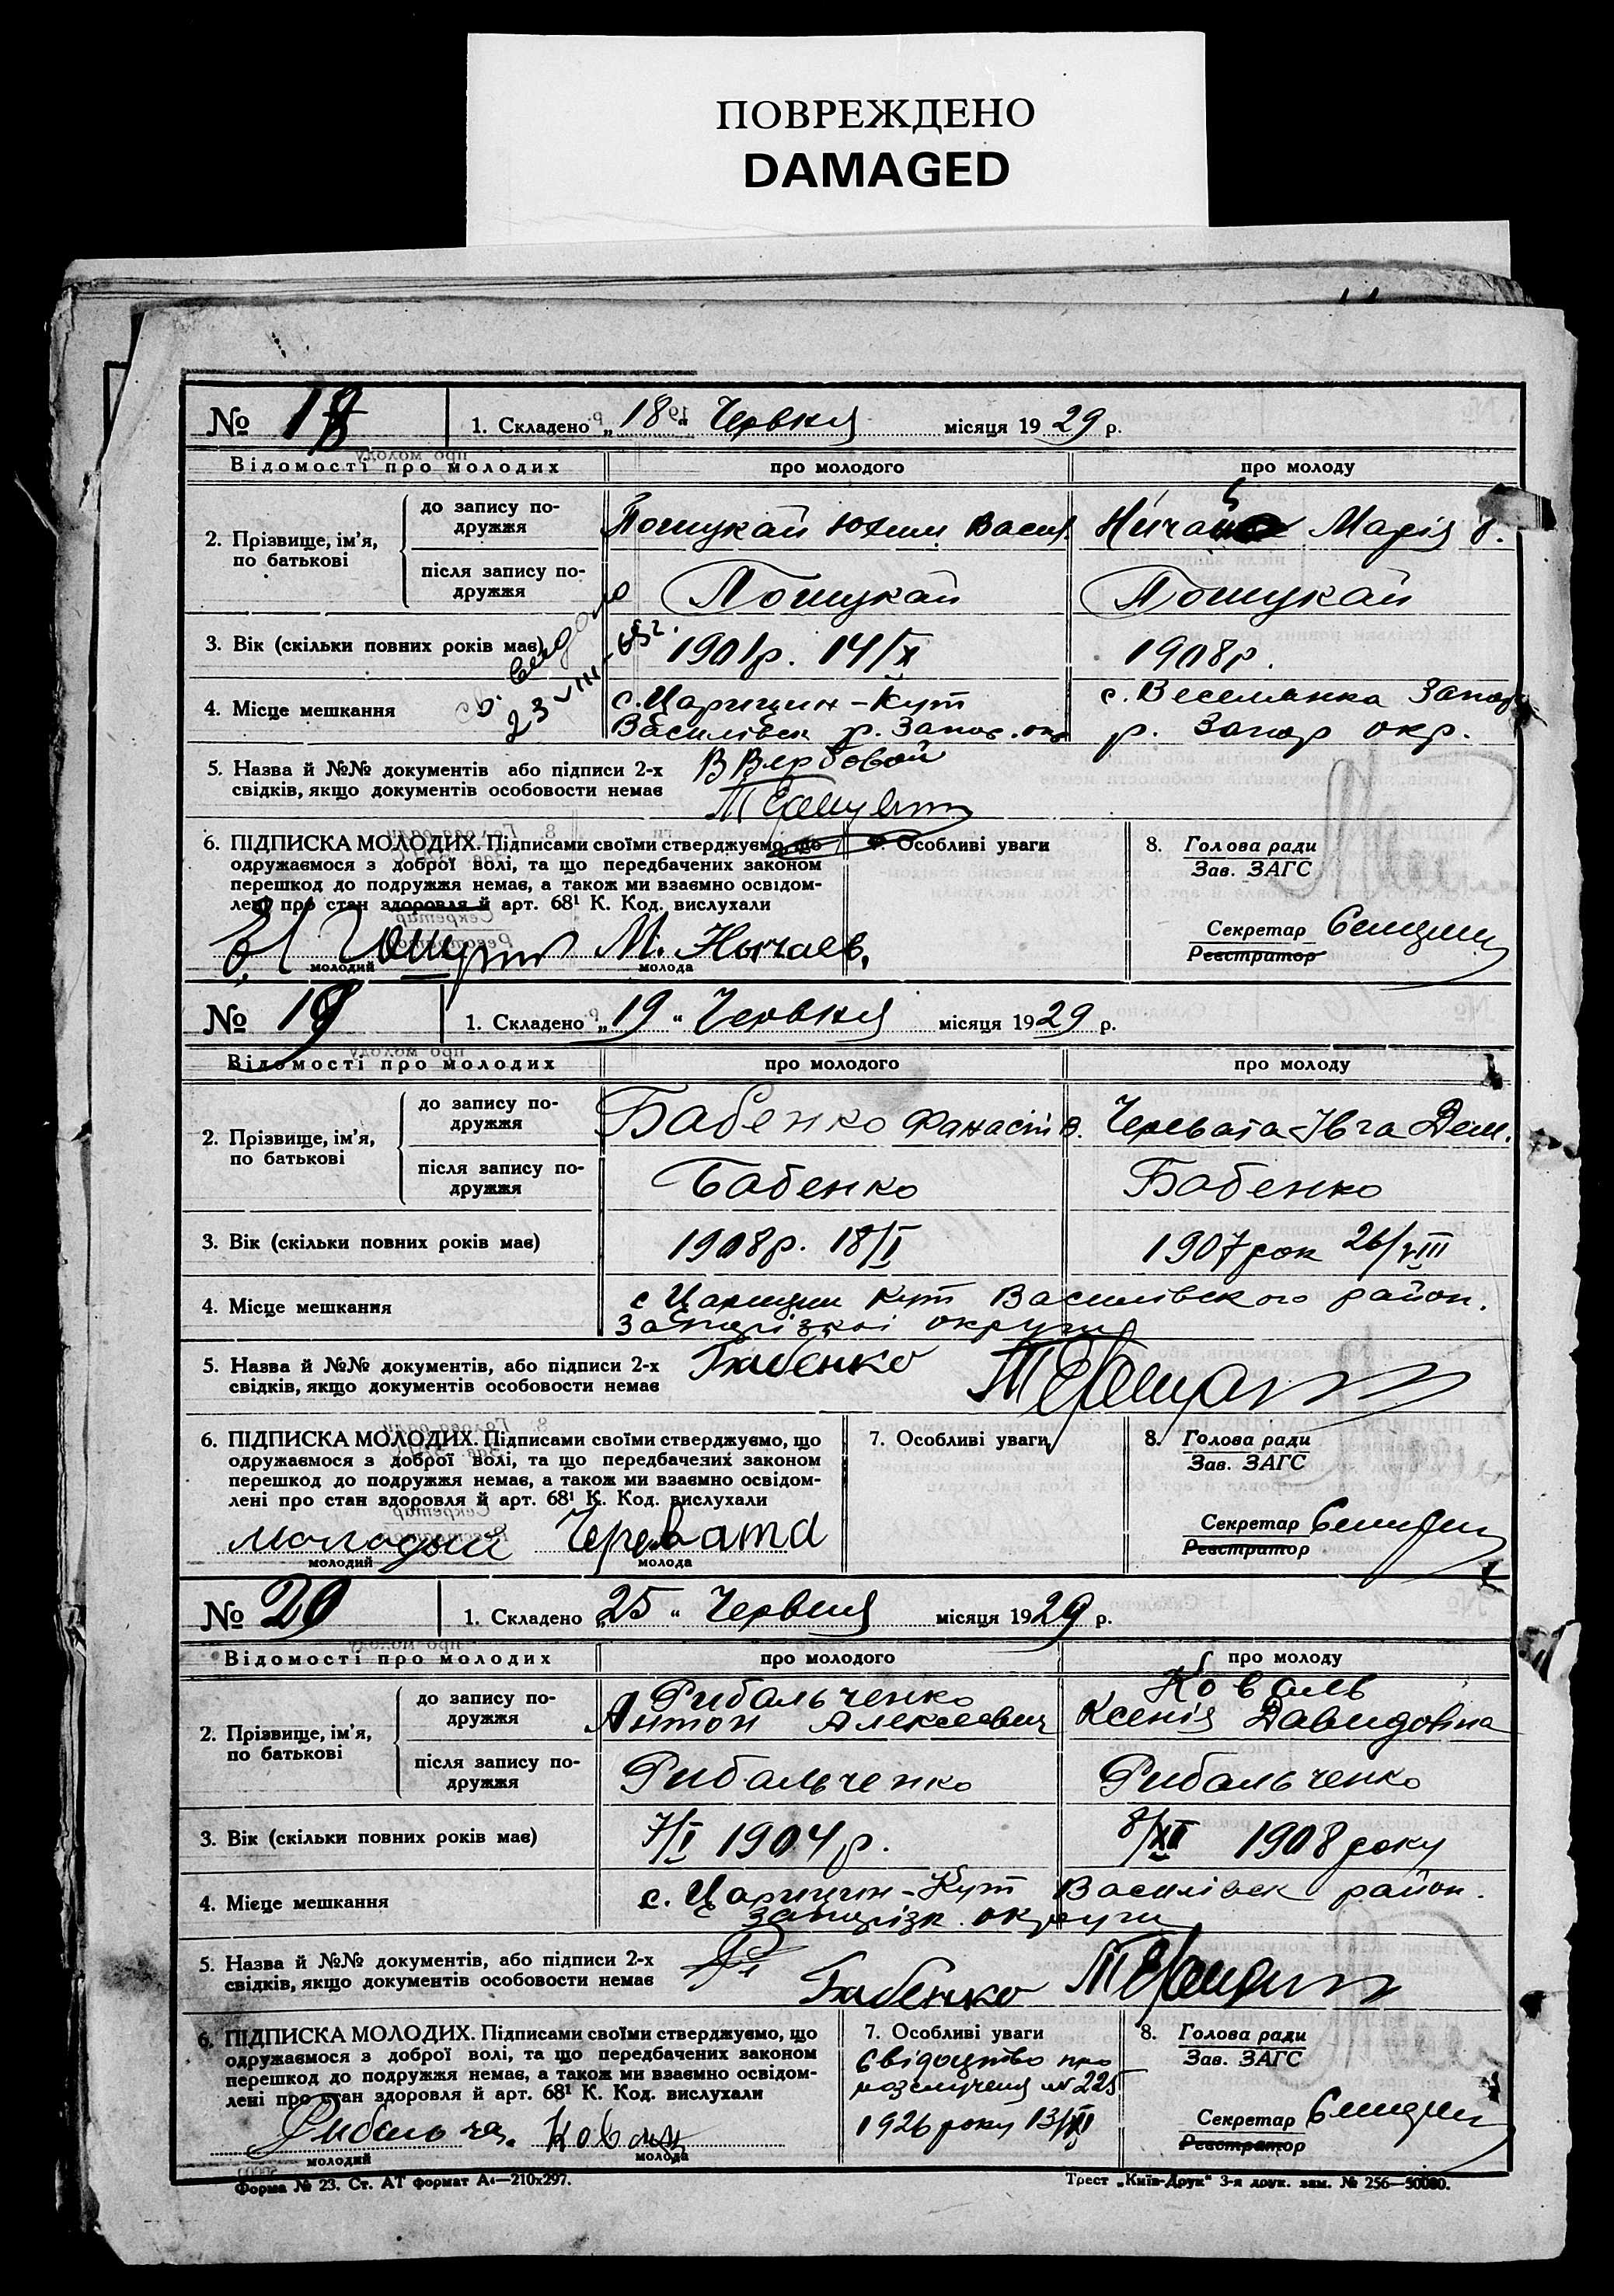 ПОВРЕЖДЕНО
DAMAGED
№ 18 1. Складено „18“ Червня місяця 1929 р.
Відомості про молодих про молодого про молоду
2. Прізвище, ім’я, по батькові
до запису подружжя Пошукай Юхим Васил. Нічай Марія
після запису подружжя Пошукай Пошукай
3. Вік (скільки повних років має) 1901р. 14/X 1908р.
св. выдано
23-VIII-65г.
4. Місце мешкання с. Царицин-Кут с. Веселянка Запор
Василівськ р. Запор. окр р. Запор окр.
5. Назва й №№ документів або підписи 2-х В Вербовой
свідків, якщо документів особовости немає
6. ПІДПИСКА МОЛОДИХ. Підписами своїми стверджуємо, що 7. Особливі уваги 8. Голова ради
одружаємося з доброї волі, та що передбачених законом Зав. ЗАГС
перешкод до подружжя немає, а також ми взаємно освідом-
лені про стан здоровля й арт. 68¹ К. Код. вислухали
Секретар
М. Нычаев. Реєстратор
молодий молода
№ 19 1. Складено „19“ Червня місяця 1929 р.
Відомості про молодих про молодого про молоду
2. Прізвище, ім’я, по батькові
до запису подружжя Бабенко Фанасій В. Черевата Івга Дем.
після запису подружжя Бабенко Бабенко
3. Вік (скільки повних років має) 1908р. 18/I 1907 рок 26/VIII
4. Місце мешкання с Царицин Кут Василівского район.
Запорізкої округи
5. Назва й №№ документів, або підписи 2-х Бабенко
свідків, якщо документів особовости немає
6. ПІДПИСКА МОЛОДИХ. Підписами своїми стверджуємо, що 7. Особливі уваги 8. Голова ради
одружаємося з доброї волі, та що передбачених законом Зав. ЗАГС
перешкод до подружжя немає, а також ми взаємно освідом-
лені про стан здоровля й арт. 68¹ К. Код. вислухали
Секретар
молодый Черевата Реєстратор
молодий молода
№ 20 1. Складено „25“ Червня місяця 1929 р.
Відомості про молодих про молодого про молоду
2. Прізвище, ім’я, по батькові
до запису подружжя Рибальченко Коваль
Антон Алексеевич Ксенія Давидовна
після запису подружжя Рибальченко Рибальченко
3. Вік (скільки повних років має) 7/I 1904р. 8/XII 1908 року
4. Місце мешкання с. Царицин-Кут Василівськ район.
Запорізк. округи
5. Назва й №№ документів, або підписи 2-х
свідків, якщо документів особовости немає Бабенко
6. ПІДПИСКА МОЛОДИХ. Підписами своїми стверджуємо, що 7. Особливі уваги 8. Голова ради
одружаємося з доброї волі, та що передбачених законом Свідоцтво про Зав. ЗАГС
перешкод до подружжя немає, а також ми взаємно освідом- розлученя № 225
лені про стан здоровля й арт. 68¹ К. Код. вислухали 1926 року 13/XII
Секретар
Рибальче. Коваль Реєстратор
молодий молода
Форма № 23. Ст. АТ формат А₄—210х297. Трест „Київ-Друк“ 3-я друк. зам. № 256—50000.